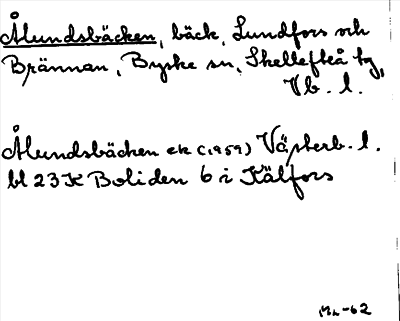 Ålundsbäcken, bäck, Lundfors och
Brännan, Byske sn, Skellefteå tg,
Vb. l.
Ålundsbäcken ek (1959) Västerb. l.
bl 23K Boliden 6 i Källfors
Mn-62